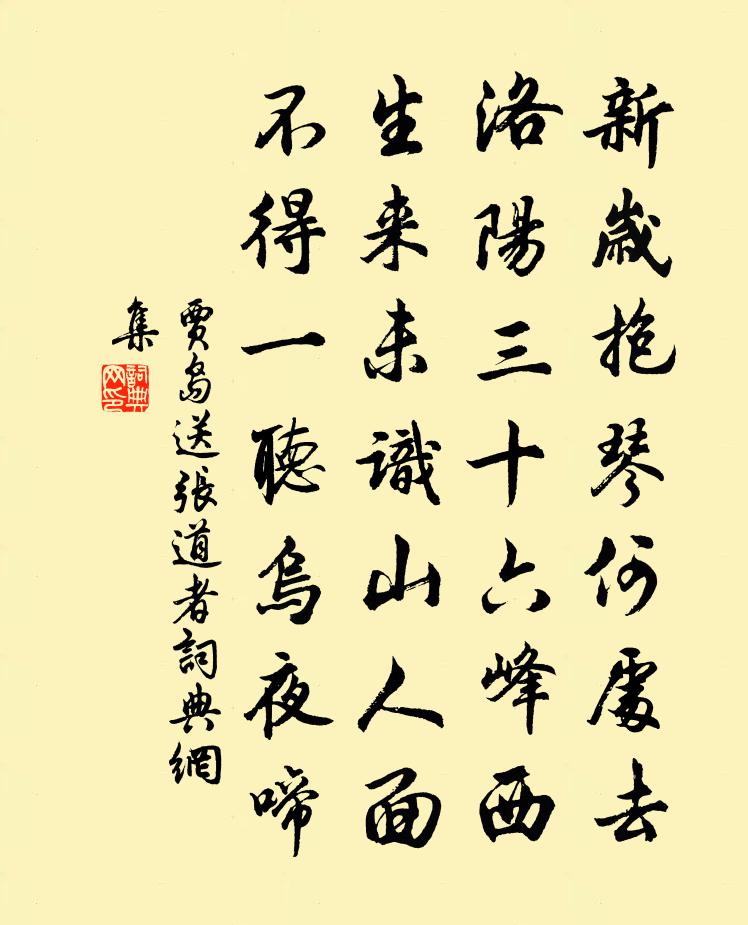 新歲抱琴何處去
洛陽三十六峰西
生来未識山人面
不得一聽烏夜啼
賈島送張道者詞典網
集
詞典网印